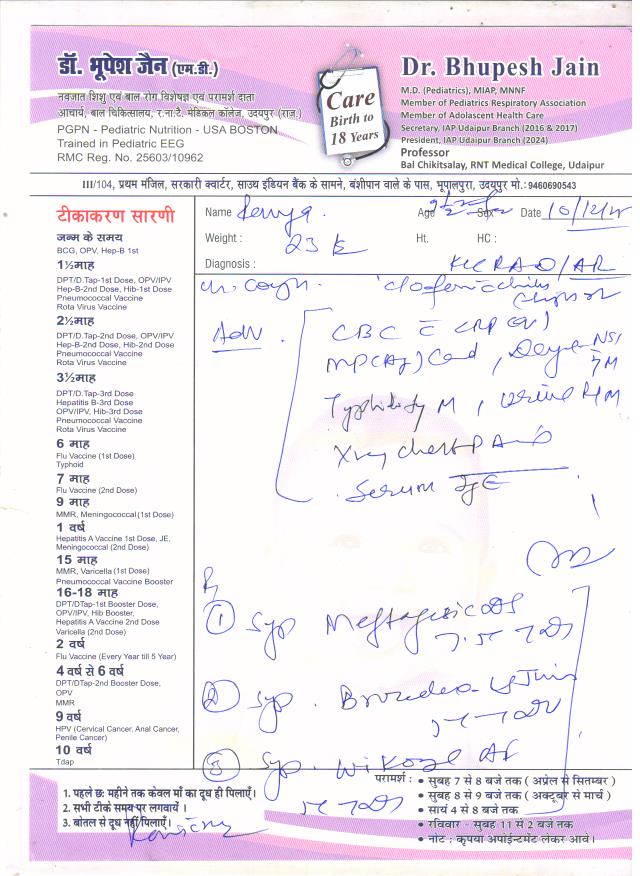 डॉ. भूपेश जैन (एम.डी.)
नवजात शिशु एवं बाल रोग विशेषज्ञ एवं परामर्श दाता
आचार्य, बाल चिकित्सालय, र.ना.टै. मेडिकल कॉलेज, उदयपुर (राज.)
PGPN - Pediatric Nutrition - USA BOSTON
Trained in Pediatric EEG
RMC Reg. No. 25603/10962
Care
Birth to
18 Years
Dr. Bhupesh Jain
M.D. (Pediatrics), MIAP, MNNF
Member of Pediatrics Respiratory Association
Member of Adolascent Health Care
Secretary, IAP Udaipur Branch (2016 & 2017)
President, IAP Udaipur Branch (2024)
Professor
Bal Chikitsalay, RNT Medical College, Udaipur
III/104, प्रथम मंजिल, सरकारी क्वार्टर, साउथ इंडियन बैंक के सामने, बंशीपान वाले के पास, भूपालपुरा, उदयपुर मो.: 9460690543
टीकाकरण सारणी
जन्म के समय
BCG, OPV, Hep-B 1st
1½माह
DPT/D.Tap-1st Dose, OPV/IPV
Hep-B-2nd Dose, Hib-1st Dose
Pneumococcal Vaccine
Rota Virus Vaccine
2½माह
DPT/D.Tap-2nd Dose, OPV/IPV
Hep-B-2nd Dose, Hib-2nd Dose
Pneumococcal Vaccine
Rota Virus Vaccine
3½माह
DPT/D.Tap-3rd Dose
Hepatitis B-3rd Dose
OPV/IPV, Hib-3rd Dose
Pneumococcal Vaccine
Rota Virus Vaccine
6 माह
Flu Vaccine (1st Dose)
Typhoid
7 माह
Flu Vaccine (2nd Dose)
9 माह
MMR, Meningococcal (1st Dose)
1 वर्ष
Hepatitis A Vaccine 1st Dose, JE,
Meningococcal (2nd Dose)
15 माह
MMR, Varicella (1st Dose)
Pneumococcal Vaccine Booster
16-18 माह
DPT/DTap-1st Booster Dose,
OPV/IPV, Hib Booster,
Hepatitis A Vaccine 2nd Dose
Varicella (2nd Dose)
2 वर्ष
Flu Vaccine (Every Year till 5 Year)
4 वर्ष से 6 वर्ष
DPT/DTap-2nd Booster Dose,
OPV
MMR
9 वर्ष
HPV (Cervical Cancer, Anal Cancer,
Penile Cancer)
10 वर्ष
Tdap
Name Age Sex Date 10/12/
Weight : 23 k Ht. HC :
Diagnosis : /AR
Adv
CBC CRP
MP Card, NS1
M, Urine R/M
Xray chest PA
Serum IgE
R
1 Syp Meftagesic DS
2 Syp.
3 Syp. Wikoryl AF
1. पहले छ: महीने तक केवल माँ का दूध ही पिलाएँ।
2. सभी टीके समय पर लगवायें ।
3. बोतल से दूध नहीं पिलाएँ।
परामर्श :
• सुबह 7 से 8 बजे तक ( अप्रेल से सितम्बर )
• सुबह 8 से 9 बजे तक ( अक्टूबर से मार्च )
• सायं 4 से 8 बजे तक
• रविवार - सुबह 11 से 2 बजे तक
• नोट : कृपया अपोईन्टमेंट लेकर आवे।